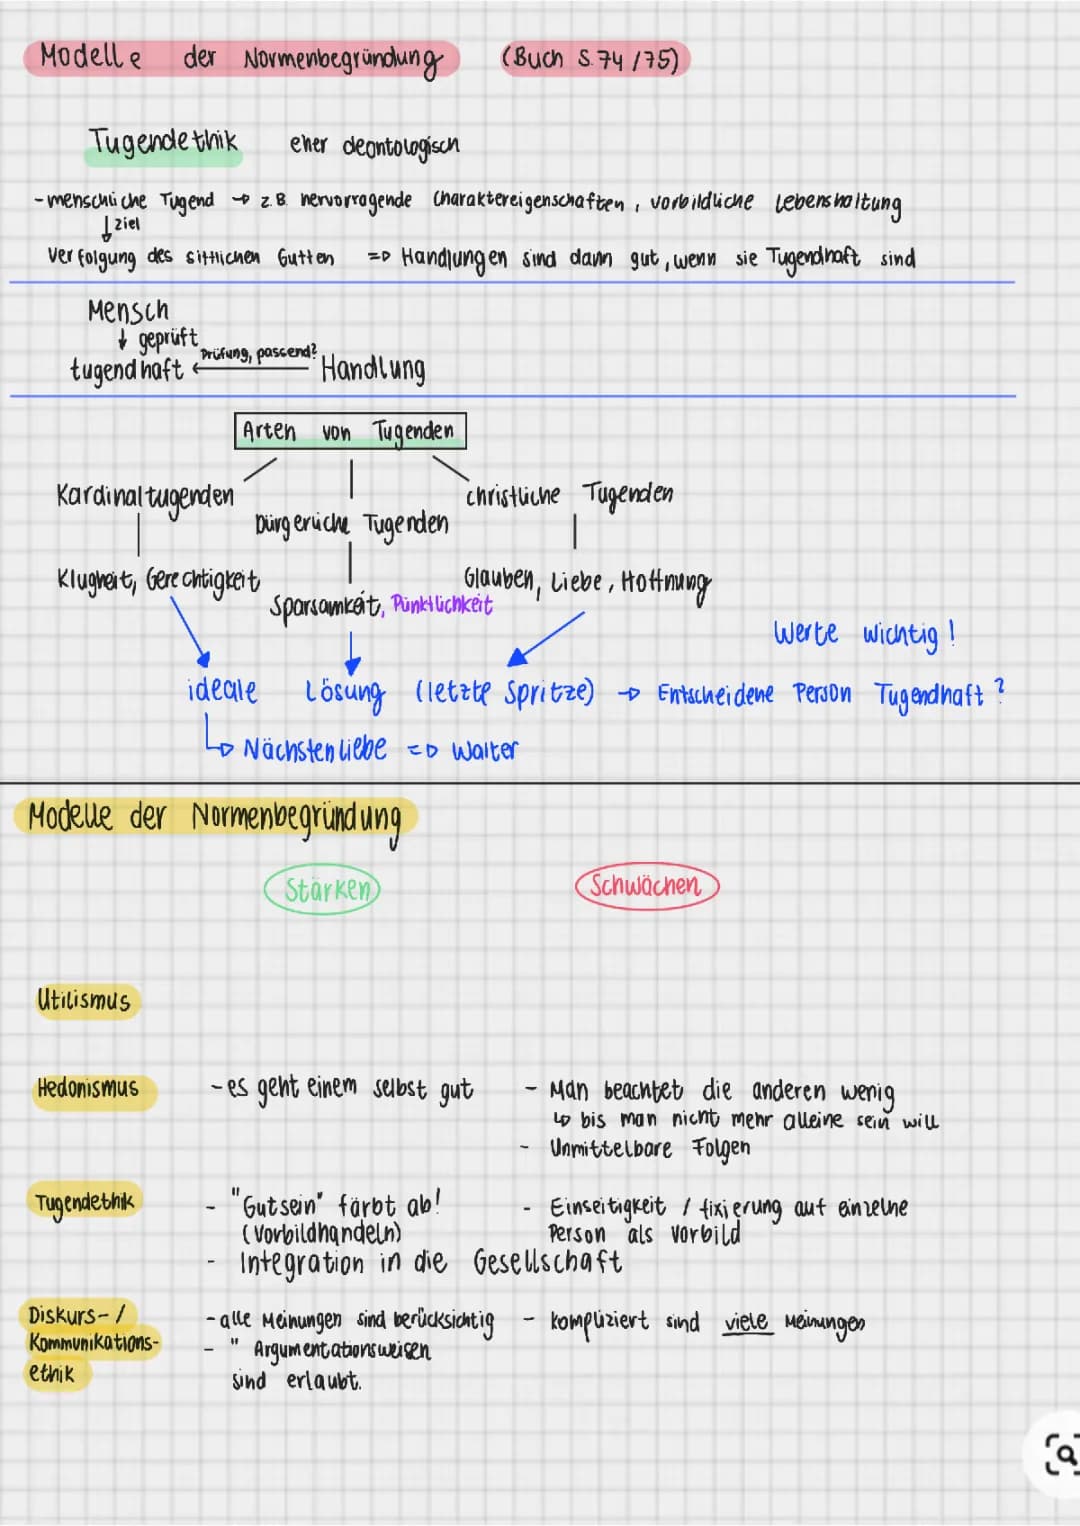 Modelle der Normenbegründung (Buch S. 74 / 75)
Tugendethik eher deontologisch
- menschliche Tugend → z.B. hervorragende Charaktereigenschaften, vorbildliche Lebenshaltung
↓ Ziel
Verfolgung des sittlichen Gutten => Handlungen sind dann gut, wenn sie Tugendhaft sind
Mensch
↓ geprüft
tugendhaft ← Prüfung, passend? Handlung
Arten von Tugenden
Kardinaltugenden
christliche Tugenden
Bürgerliche Tugenden
Klugheit, Gerechtigkeit
Glauben, Liebe, Hoffnung
Sparsamkeit, Pünktlichkeit
Werte wichtig!
ideale Lösung (letzte Spritze) → Entscheidene Person Tugendhaft?
↳ Nächstenliebe => Walter
Modelle der Normenbegründung
Stärken Schwächen
Utilismus
Hedonismus - es geht einem selbst gut - Man beachtet die anderen wenig
↳ bis man nicht mehr alleine sein will
- Unmittelbare Folgen
Tugendethik - "Gutsein" färbt ab! - Einseitigkeit / fixierung auf einzelne
(Vorbildhandeln) Person als Vorbild
- Integration in die Gesellschaft
Diskurs-/ - alle Meinungen sind berücksichtig - kompliziert sind viele Meinungen
Kommunikations- - " Argumentationsweisen
ethik sind erlaubt.